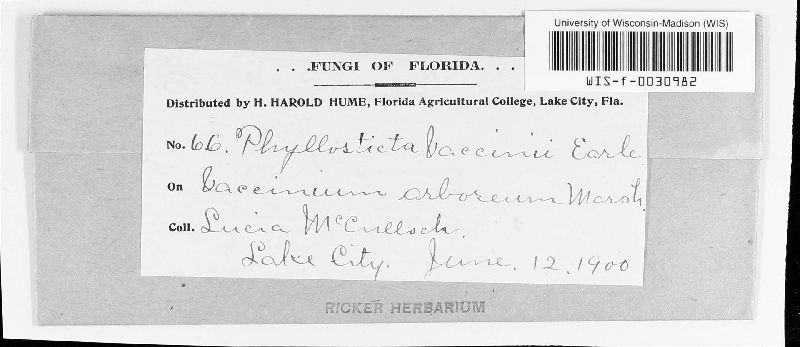 University of Wisconsin-Madison (WIS)
WIS-f-0030982
. . .FUNGI OF FLORIDA. . .
Distributed by H. HAROLD HUME, Florida Agricultural College, Lake City, Fla.
No. 66. Phyllosticta Vaccinii Earle.
On Vaccinium arboreum Marsh.
Coll. Lucia McCulloch.
Lake City. June. 12. 1900
RICKER HERBARIUM